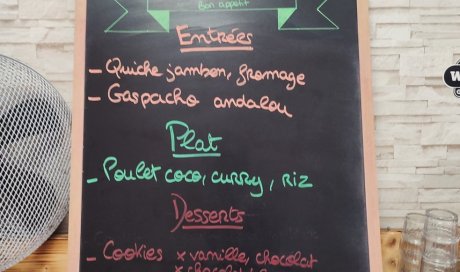 Bon appétit
Entrées
- Quiche jambon, fromage
- Gaspacho andalou
Plat
- Poulet coco, curry, riz
Desserts
- Cookies x vanille, chocolat
x chocolat
W